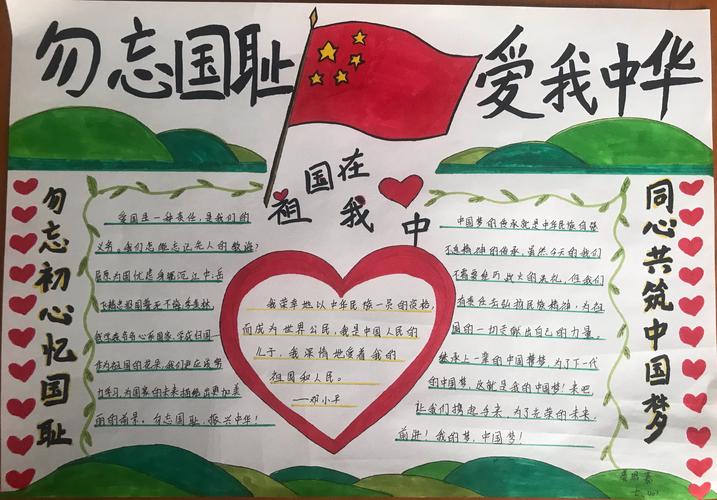 勿忘国耻
爱我中华
祖国在我❤中
勿忘初心忆国耻
爱国是一种责任,是我们的
义务。我们怎能忘记先人的教诲?
屈原为国忧虑
力学习,为国家的未来描绘出更加美
丽的前景。勿忘国耻,振兴中华!
我荣幸地以中华民族一员的资格
而成为世界公民,我是中国人民的
儿子,我深情地爱着我的
祖国和人民。
——邓小平
中国梦的传承就是中华民族自强
不息精神的传承。虽然今天的我们
不需要经历战火的洗礼,但我们
有责任去弘扬民族精神,为祖
国的一切贡献出自己的力量。
继承上一辈的中国梦,为了下一代
的中国梦,这就是我的中国梦!来吧
让我们携起手来,为了光荣的未来
前进!我的梦,中国梦!
同心共筑中国梦